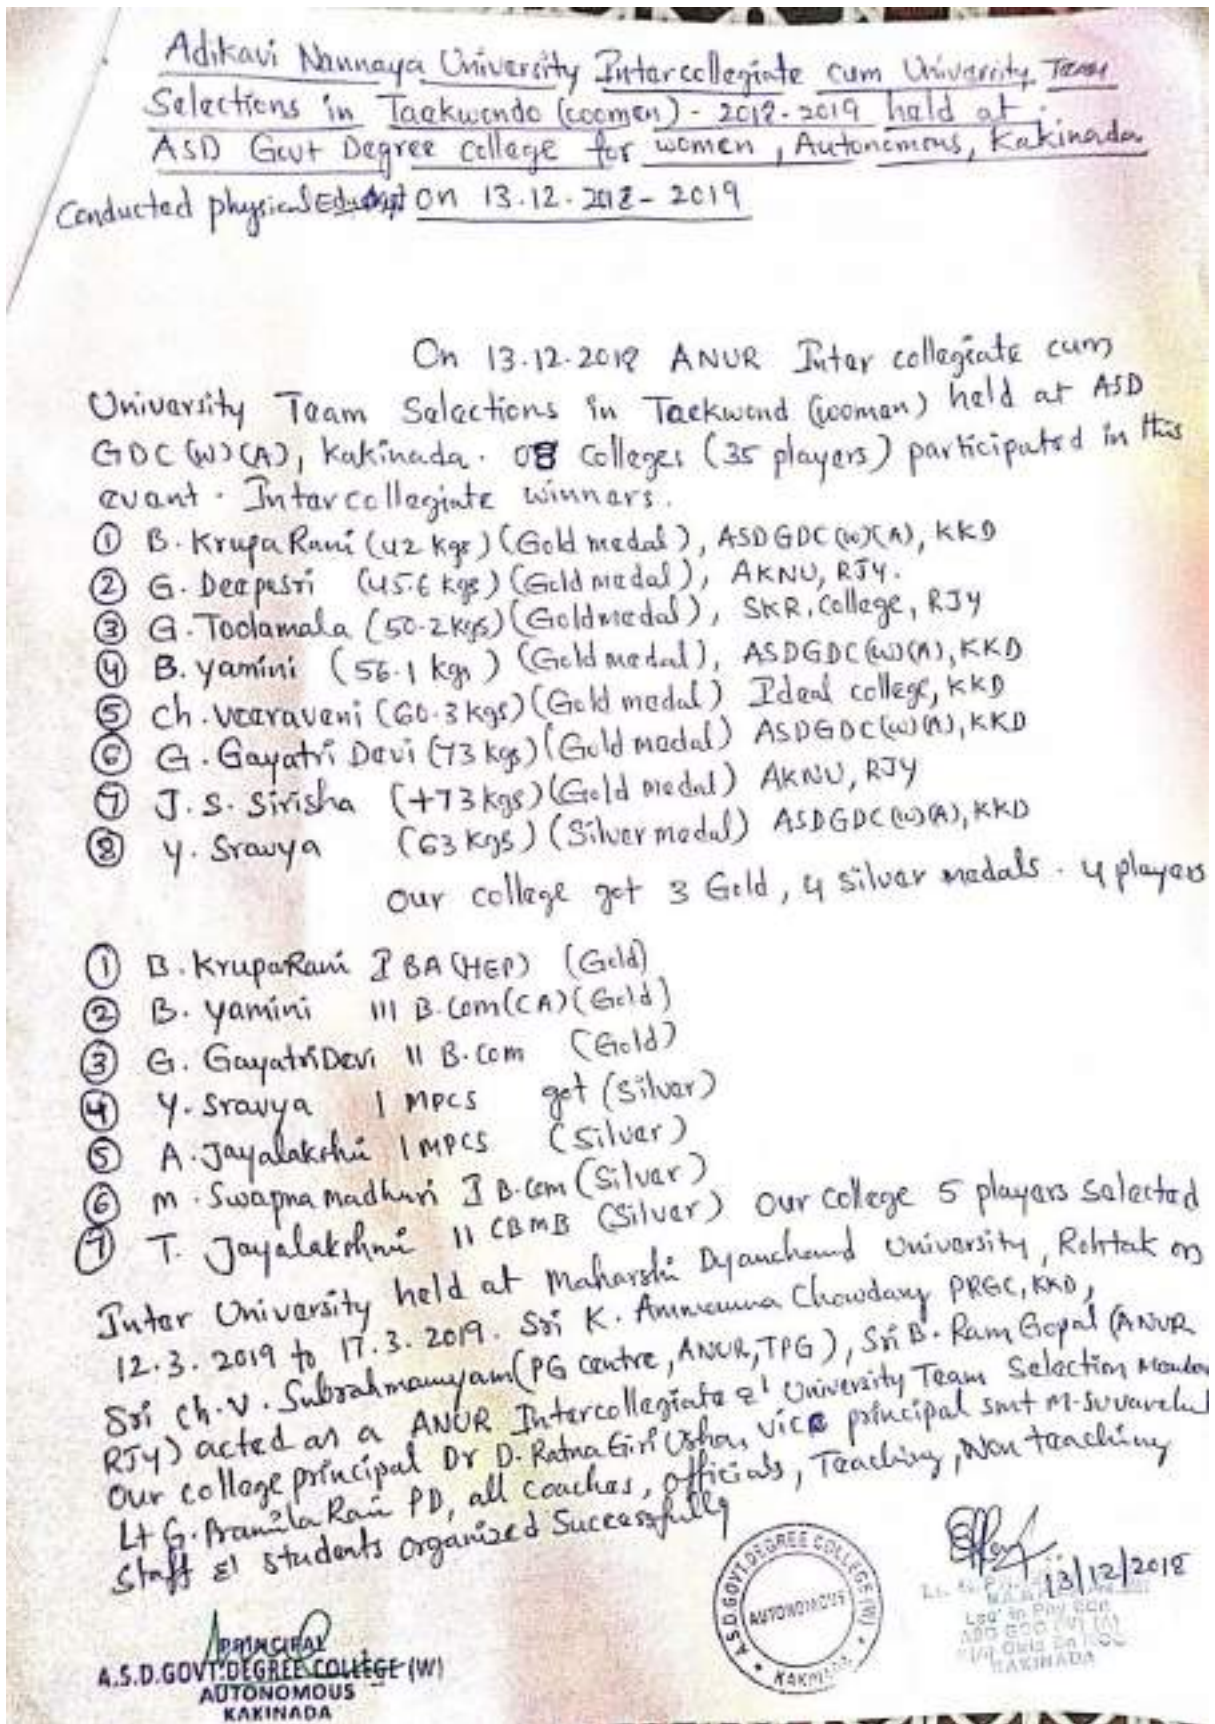 Adikavi Nannaya University Intercollegiate cum University Team
Selections in Taekwondo (women) - 2018-2019 held at
ASD Govt Degree college for women, Autonomous, Kakinada
Conducted physical On 13.12.2018 - 2019
On 13.12.2018 ANUR Inter collegiate cum
University Team Selections in Taekwond (women) held at ASD
GDC (W)(A), Kakinada. 08 Colleges (35 players) participated in this
event. Intercollegiate winners.
① B. Krupa Rani (42 kgs) (Gold medal), ASDGDC(W)(A), KKD
② G. Deepasri (45.6 kgs) (Gold medal), AKNU, RJY.
③ G. Toolamala (50.2 kgs) (Gold medal), SKR. College, RJY
④ B. Yamini (56.1 kgs) (Gold medal), ASDGDC(W)(A), KKD
⑤ Ch. Veeraveni (60.3 kgs) (Gold medal) Ideal college, KKD
⑥ G. Gayatri Devi (73 kgs) (Gold medal) ASDGDC(W)(A), KKD
⑦ J. S. Sirisha (+73 kgs) (Gold medal) AKNU, RJY
⑧ Y. Sravya (63 kgs) (Silver medal) ASDGDC(W)(A), KKD
Our college get 3 Gold, 4 silver medals. 4 players
① B. KrupaRani I BA (HEP) (Gold)
② B. Yamini III B.Com (CA) (Gold)
③ G. GayatriDevi II B.Com (Gold)
④ Y. Sravya I MPCS get (Silver)
⑤ A. Jayalakshmi I MPCS (Silver)
⑥ M. Swapna madhuri I B.Com (Silver)
⑦ T. Jayalakshmi II CBMB (Silver) Our college 5 players Selected
Inter University held at Maharshi Dyanchand University, Rohtak on
12.3.2019 to 17.3.2019. Sri K. Chowdary PRGC, KKD,
Sri Ch. V. Subrahmanyam (PG centre, ANUR, TPG), Sri B. Ram Gopal (ANUR
RJY) acted as a ANUR Intercollegiate & University Team Selection
Our college principal Dr D. Ratna Giri Usha, vice principal smt
Lt G. Pramila Rani PD, all coaches, officials, Teaching, Non teaching
Staff & students organized Successfully
13/12/2018
PRINCIPAL
A.S.D.GOVT.DEGREE COLLEGE (W)
AUTONOMOUS
KAKINADA
A.S.D.GOVT.DEGREE COLLEGE (W)
AUTONOMOUS
KAKINADA
KAKINADA